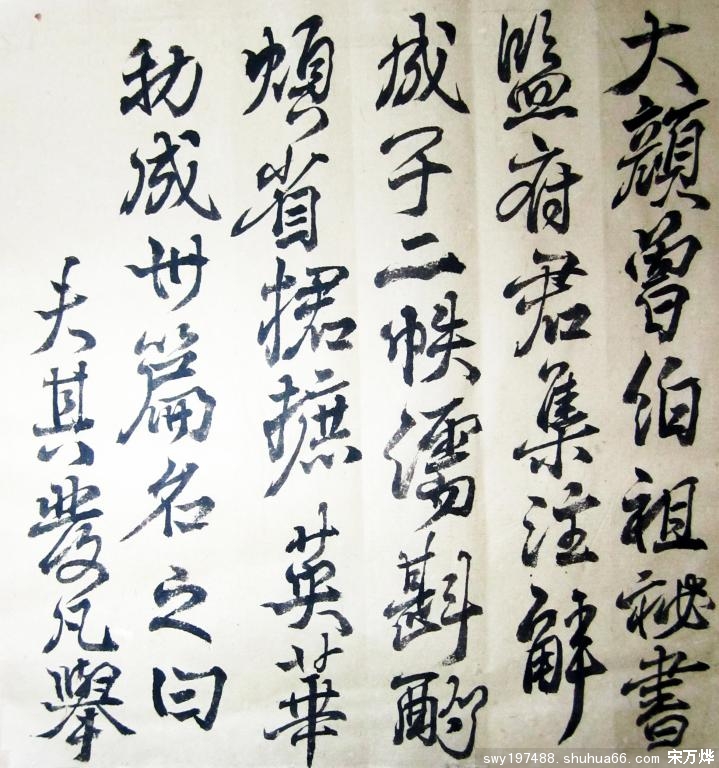 大顏曾伯祖秘書
監府君集注解
成子二帙斟酌
煩省捃摭英華
成卅篇名之曰
夫其發凡舉
swy197488.shuhua66.com 宋万烨